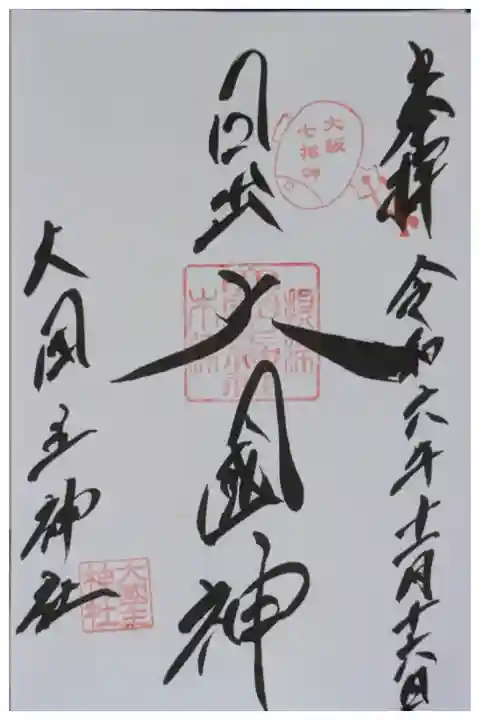 奉拝
令和六年十二月十六日
大阪
七福神
日出大國神
大国主神社
大國主
神社